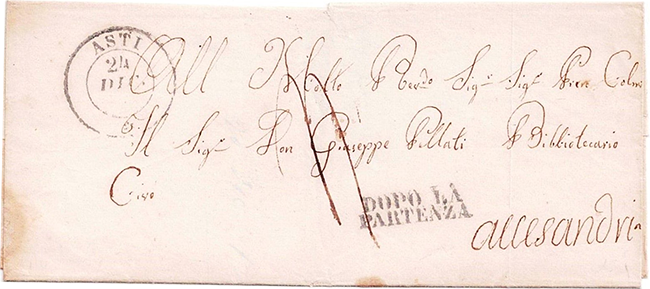 ASTI
24
DIC
All Molto Sigr Sigr
Il Sigr Don Giuseppe Pillati Bibliotecario
Civo
DOPO LA
PARTENZA
allesandria